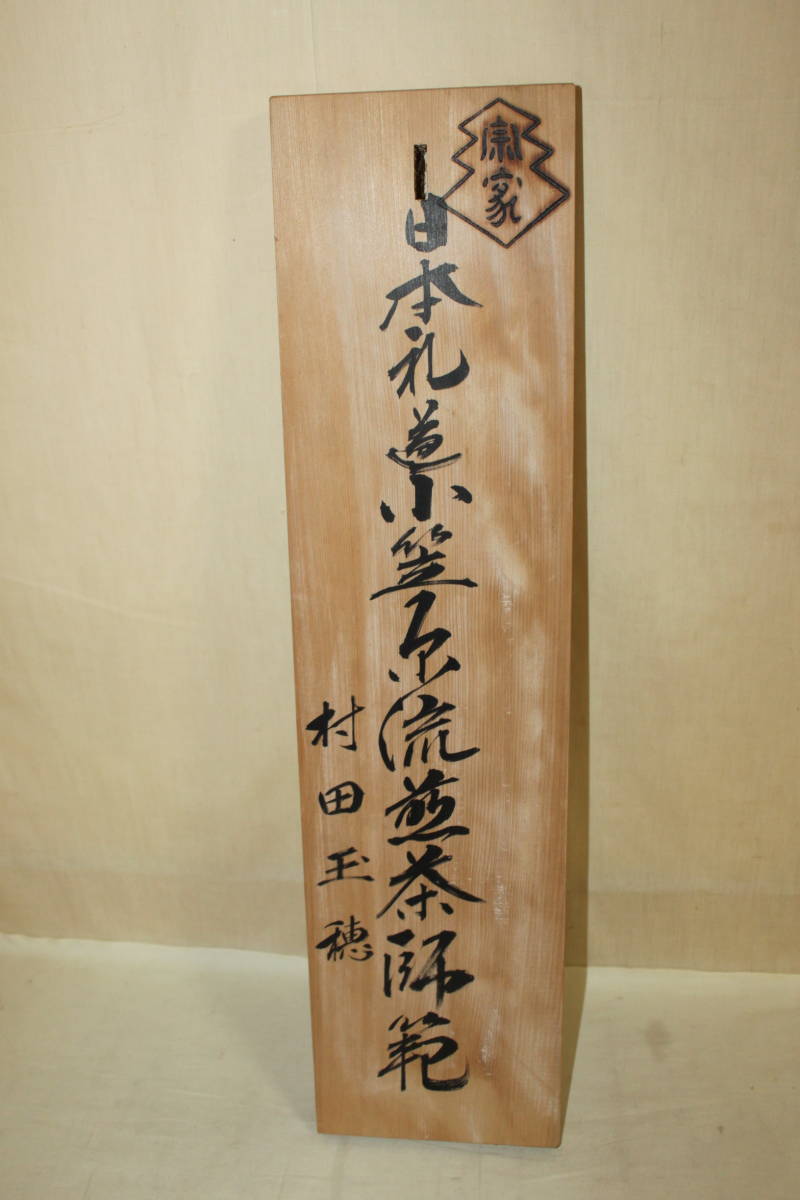 宗家
日本礼道小笠原流煎茶師範
村田玉穂